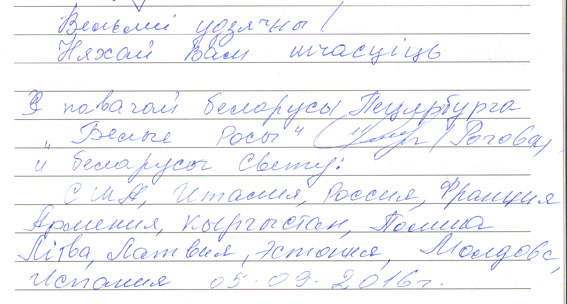 Вельмі ўдзячны!
Няхай Вам шчасціць
З павагай беларусы Пецярбурга
"Белые Росы" (Рогова)
и беларусы Свету:
США, Италия, Россия, Франция
Армения, Кыргыстан, Полша
Літва, Латвия, Эстония, Молдова,
Испания 05.09.2016г.